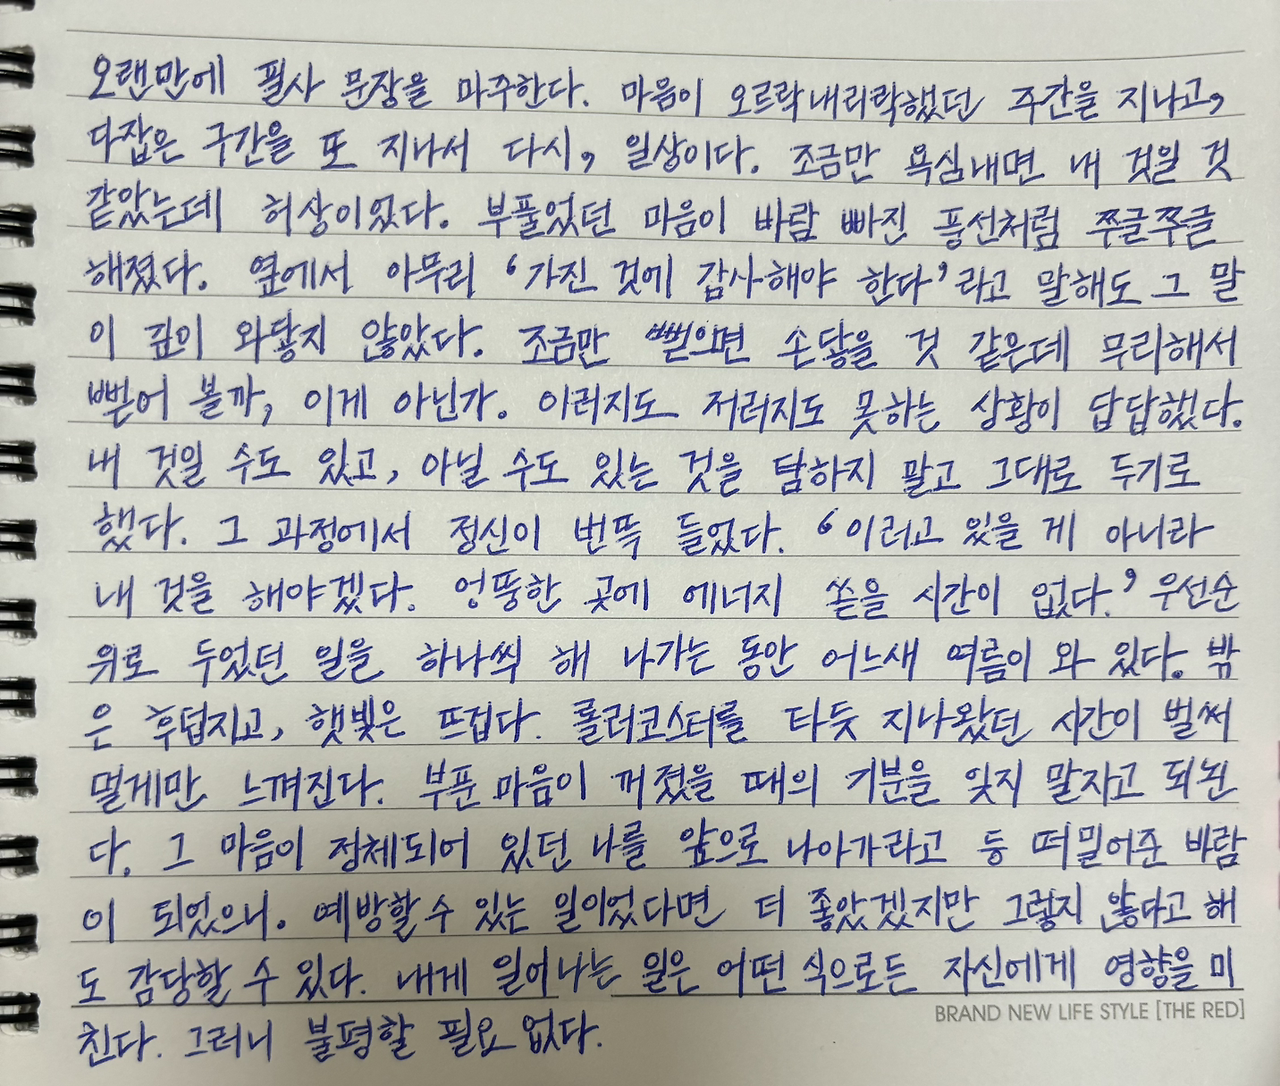 오랜만에 필사 문장을 마주한다. 마음이 오르락내리락했던 주간을 지나고,
다잡은 구간을 또 지나서 다시, 일상이다. 조금만 욕심내면 내 것일 것
같았는데 허상이었다. 부풀었던 마음이 바람 빠진 풍선처럼 쭈글쭈글
해졌다. 옆에서 아무리 '가진 것에 감사해야 한다'라고 말해도 그 말
이 깊이 와닿지 않았다. 조금만 뻗으면 손 닿을 것 같은데 무리해서
뻗어 볼까, 이게 아닌가. 이러지도 저러지도 못하는 상황이 답답했다.
내 것일 수도 있고, 아닐 수도 있는 것을 탐하지 말고 그대로 두기로
했다. 그 과정에서 정신이 번뜩 들었다. '이러고 있을 게 아니라
내 것을 해야겠다. 엉뚱한 곳에 에너지 쏟을 시간이 없다.' 우선순
위로 두었던 일을 하나씩 해 나가는 동안 어느새 여름이 와 있다. 밖
은 후덥지고, 햇빛은 뜨겁다. 롤러코스터를 타듯 지나왔던 시간이 벌써
멀게만 느껴진다. 부푼 마음이 꺼졌을 때의 기분을 잊지 말자고 되뇐
다. 그 마음이 정체되어 있던 나를 앞으로 나아가라고 등 떠밀어준 바람
이 되었으니. 예방할 수 있는 일이었다면 더 좋았겠지만 그렇지 않다고 해
도 감당할 수 있다. 내게 일어나는 일은 어떤 식으로든 자신에게 영향을 미
BRAND NEW LIFE STYLE [THE RED]
친다. 그러니 불평할 필요 없다.